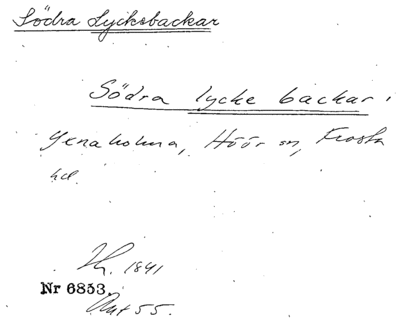 Södra Lycksbackar
Södra lycke backar,
Yxnaholma, Höör sn, Frosta
hd.
1841
Nr 6853.
55.